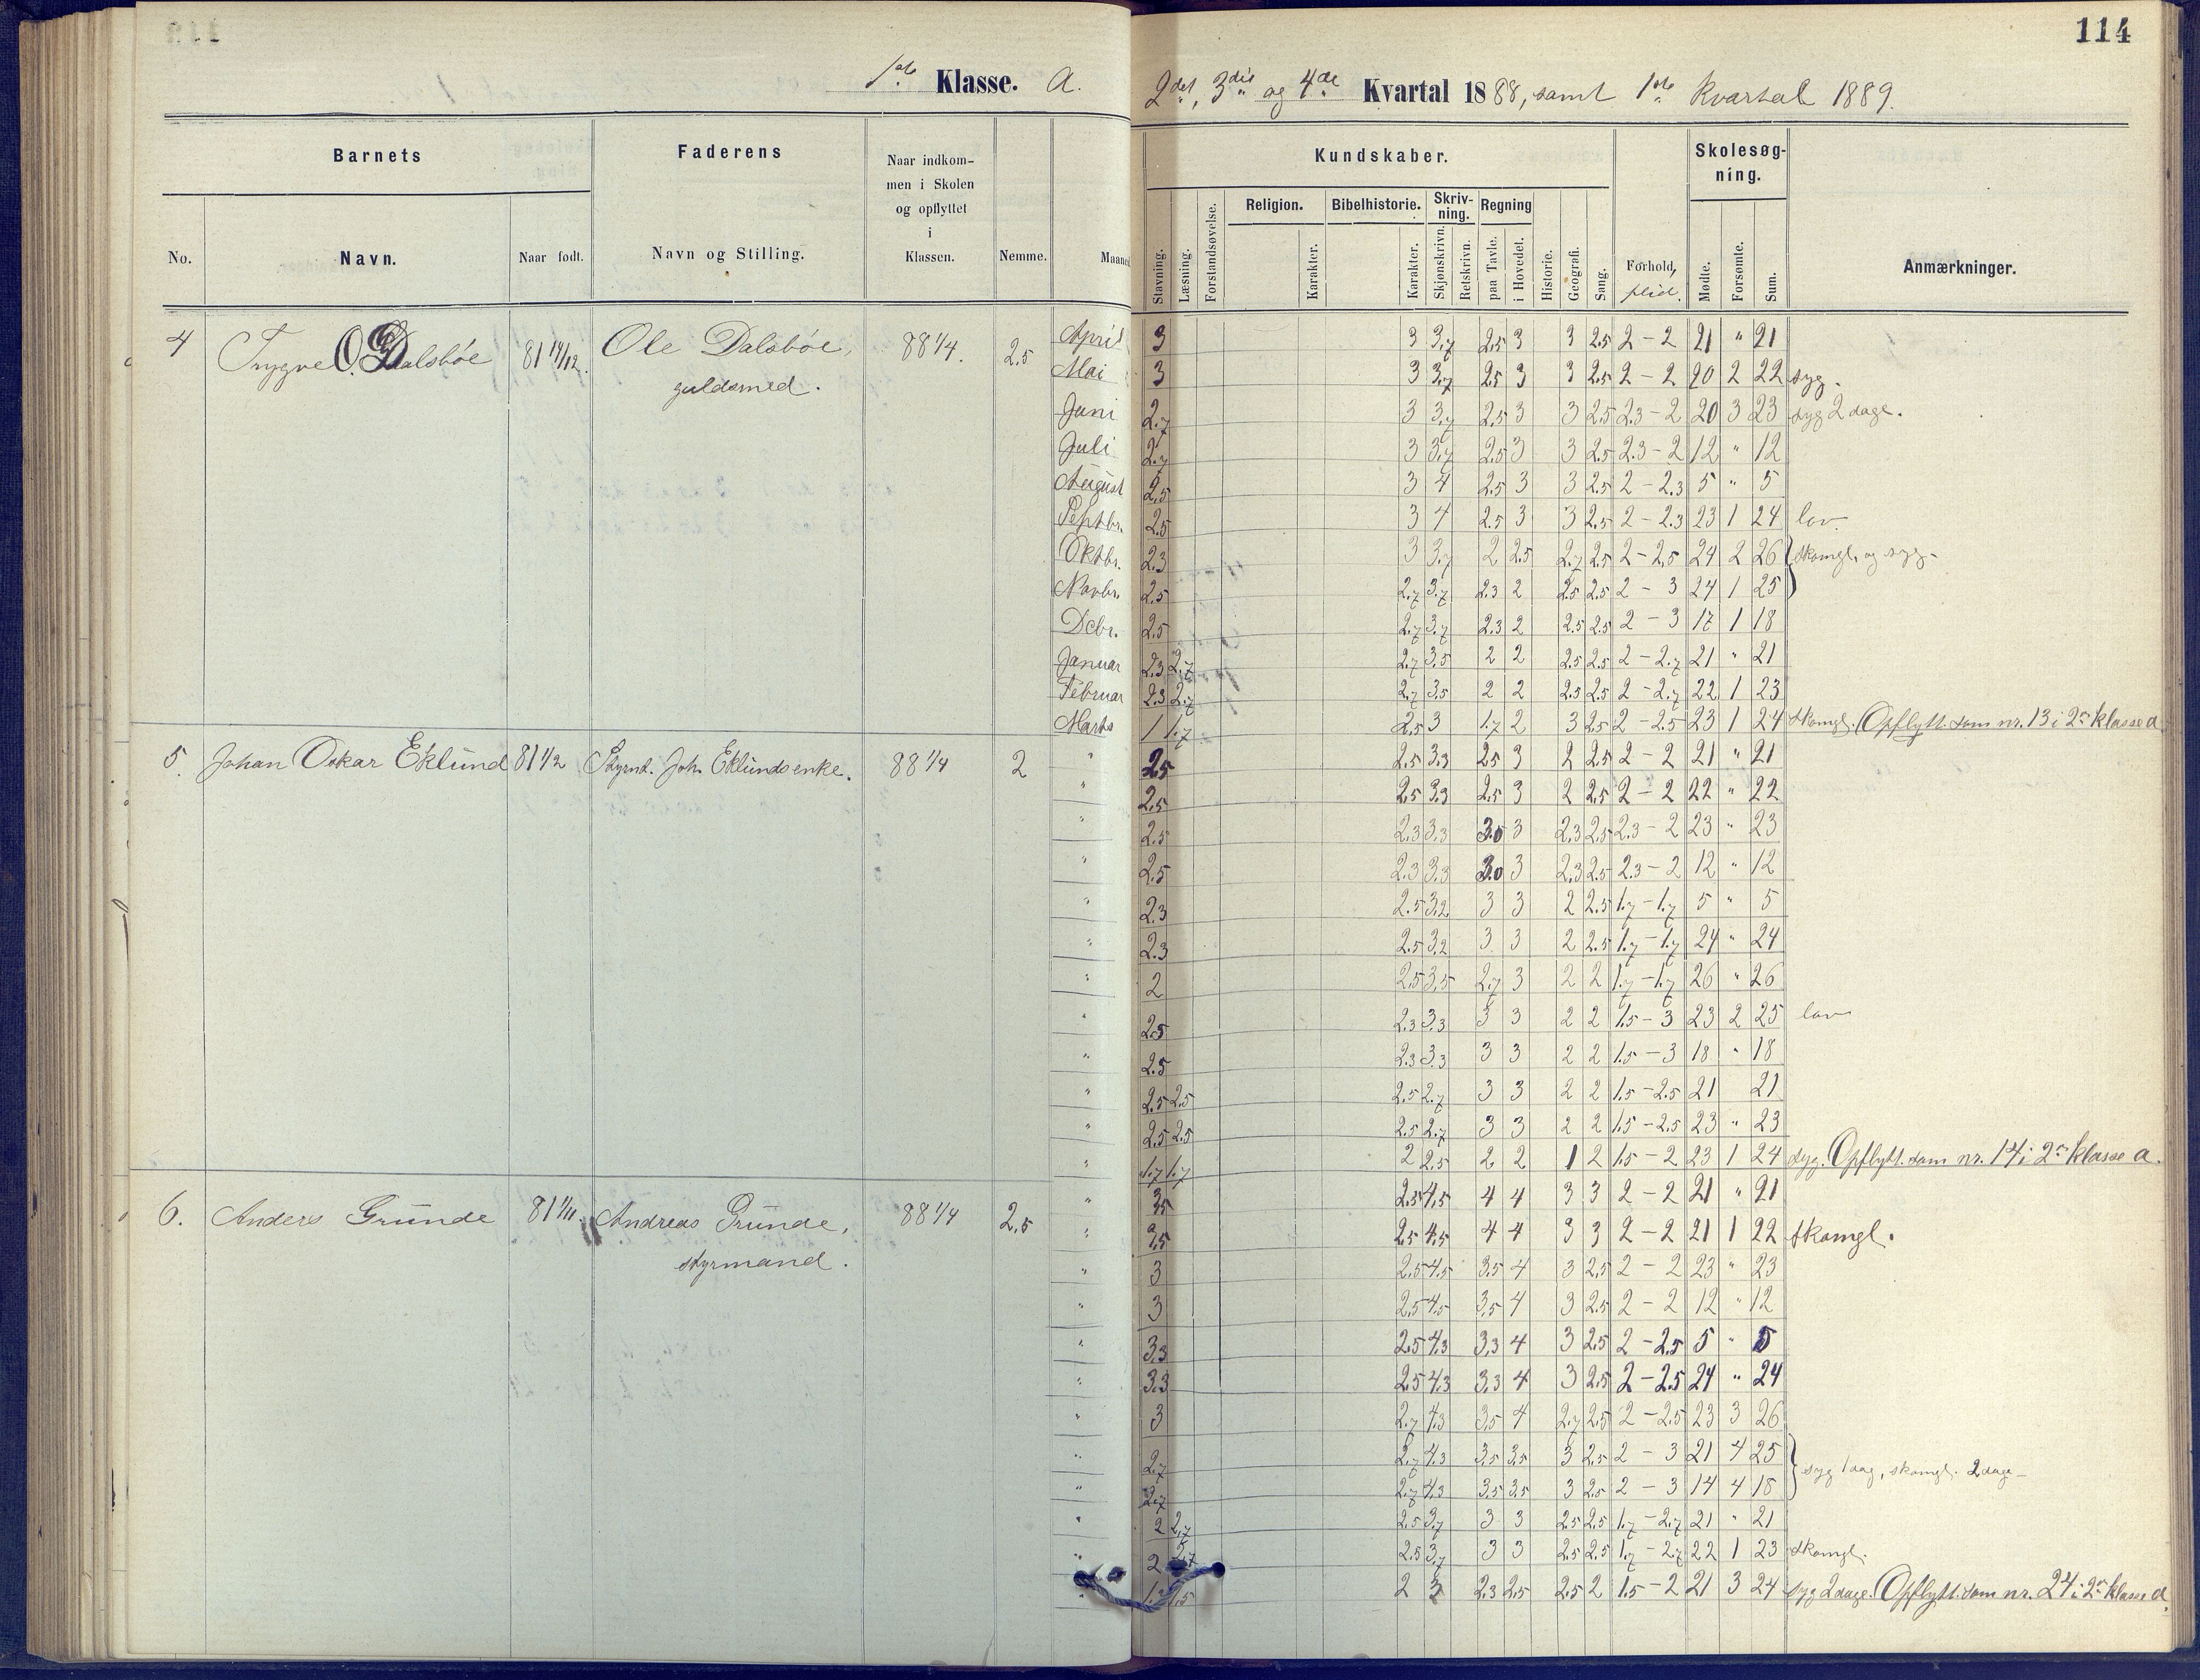 114
1ste Klasse. a.
2det, 3die og 4de Kvartal 1888, samt 1ste Kvartal 1889.
Barnets
Faderens
Naar indkom-
men i Skolen
og opflyttet
i
Klassen.
Kundskaber.
Skolesøg-
ning.
No.
Navn.
Naar født.
Navn og Stilling.
Nemme.
Maaned
Stavning.
Læsning.
Forstandsøvelse.
Religion.
Karakter.
Bibelhistorie.
Karakter.
Skriv-
ning.
Skjønskrivn.
Retskrivn.
Regning
paa Tavle.
i Hovedet.
Historie.
Geografi.
Sang.
Forhold,
flid.
Mødte.
Forsømte.
Sum.
Anmærkninger.
4 Trygve O. Dalsbøe 81 14/12. Ole Dalsbøe, 88 1/4. 2,5
guldsmed.
April 3 3 3,7 2,5 3 3 2,5 2 - 2 21 " 21
Mai 3 3 3,7 2,5 3 3 2,5 2 - 2 20 2 22 syg.
Juni 2,7 3 3,7 2,5 3 3 2,5 2,3 - 2 20 3 23 syg 2 dage.
Juli 2,7 3 3,7 2,5 3 3 2,5 2,3 - 2 12 " 12
August 2,5 3 4 2,5 3 3 2,5 2 - 2,3 5 " 5
Septbr. 2,5 3 4 2,5 3 3 2,5 2 - 2,3 23 1 24 lov.
Oktbr. 2,3 3 3,7 2 2,5 2,7 2,5 2 - 2,5 24 2 26 skomgl. og syg-
Novbr. 2,5 2,7 3,7 2,3 2 2,5 2,5 2 - 3 24 1 25
Dcbr. 2,5 2,7 3,7 2,3 2 2,5 2,5 2 - 3 17 1 18
Januar 2,3 2,7 2,7 3,5 2 2 2,5 2,5 2 - 2,7 21 " 21
Februar 2,3 2,7 2,7 3,5 2 2 2,5 2,5 2 - 2,7 22 1 23
Marts 1 1,7 2,5 3 1,7 2 3 2,5 2 - 2,5 23 1 24 skomgl. Opflytt. som nr. 13 i 2en klasse a
5. Johan Oskar Eklund 81 1/2 Styrmd. Joh. Eklunds enke. 88 1/4 2
" 2,5 2,5 3,3 2,5 3 2 2,5 2 - 2 21 " 21
" 2,5 2,5 3,3 2,5 3 2 2,5 2 - 2 22 " 22
" 2,5 2,3 3,3 3,0 3 2,3 2,5 2,3 - 2 23 " 23
" 2,5 2,3 3,3 3,0 3 2,3 2,5 2,3 - 2 12 " 12
" 2,3 2,5 3,2 3 3 2 2,5 1,7 - 1,7 5 " 5
" 2,3 2,5 3,2 3 3 2 2,5 1,7 - 1,7 24 " 24
" 2 2,5 3,5 2,7 3 2 2 1,7 - 1,7 26 " 26
" 2,5 2,3 3,3 3 3 2 2 1,5 - 3 23 2 25 lov
" 2,5 2,3 3,3 3 3 2 2 1,5 - 3 18 " 18
" 2,5 2,5 2,5 2,7 3 3 2 2 1,5 - 2,5 21 21
" 2,5 2,5 2,5 2,7 3 3 2 2 1,5 - 2,5 23 " 23
" 1,7 1,7 2 2,5 2 2 1 2 1,5 - 2 23 1 24 syg. Opflytt. som nr. 14 i 2en klasse a.
6. Anders Grunde 81 1/11. Andreas Grunde, 88 1/4 2,5
styrmand.
" 3,5 2,5 4,5 4 4 3 3 2 - 2 21 " 21
" 3,5 2,5 4,5 4 4 3 3 2 - 2 21 1 22 skomgl.
" 3 2,5 4,5 3,5 4 3 2,5 2 - 2 23 " 23
" 3 2,5 4,5 3,5 4 3 2,5 2 - 2 12 " 12
" 3,3 2,5 4,3 3,3 4 3 2,5 2 - 2,5 5 " 5
" 3,3 2,5 4,3 3,3 4 3 2,5 2 - 2,5 24 " 24
" 3 2,7 4,3 3,5 4 2,7 2,5 2 - 2,5 23 3 26
" 2,7 2,7 4,3 3,5 3,5 3 2,5 2 - 3 21 4 25 syg 1 dag, skomgl. 2 dage-
" 2,7 2,7 4,3 3,5 3,5 3 2,5 2 - 3 14 4 18
" 2 2,7 2,5 3,7 3 3 2,5 2,5 1,7 - 2,7 21 " 21
" 2 2,7 2,5 3,7 3 3 2,5 2,5 1,7 - 2,7 22 1 23 skomgl.
" 1,5 2 3 2,3 2,5 2,5 2 1,5 - 2 21 3 24 syg 2 dage. Opflytt. som nr. 24 i 2en klasse a.